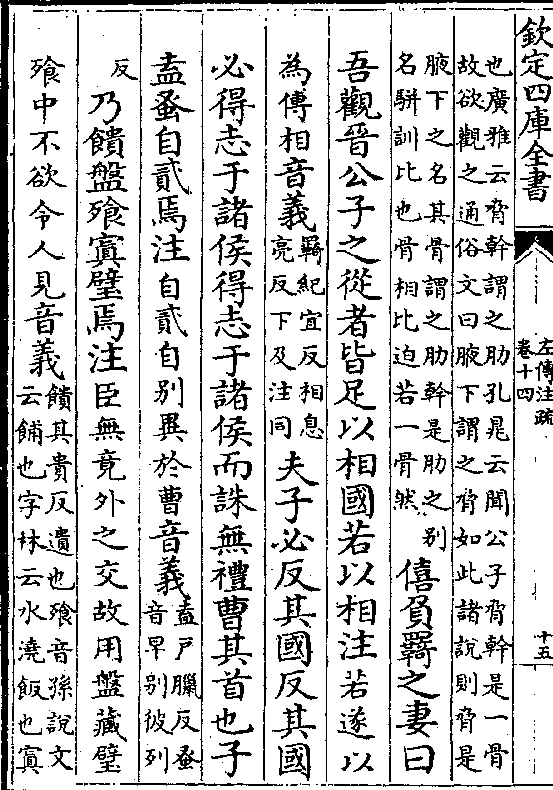 欽定四庫全書
左傳注疏
卷十四
十五
也廣雅云脅幹謂之肋孔晁云聞公子脅幹是一骨
故欲觀之通俗文曰腋下謂之脅如此諸說則脅是
腋下之名其骨謂之肋幹是肋之別
名駢訓比也骨相比迫若一骨然
僖負羈之妻曰
吾觀晉公子之從者皆足以相國若以相注若遂以
為傅相音義
羈紀宜反相息
亮反下及注同
夫子必反其國反其國
必得志于諸侯得志于諸侯而誅無禮曹其首也子
盍蚤自貳焉注自貳自別異於曹音義
盍戸臘反蚤
音早別彼列
反
乃饋盤飱寘璧焉注臣無竟外之交故用盤藏璧
飱中不欲令人見音義
饋其貴反遺也飱音孫說文
云餔也字林云水澆飯也寘